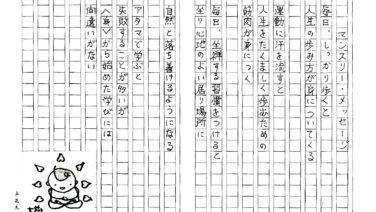 マンスリー・メッセージ
毎日、しっかり歩くと
人生の歩み方が身についてくる
運動に汗を流すと
人生をたくましく歩むための
筋肉が身につく
毎日、坐禅する習慣をつけると
至り心地のよい居り場所に
自然と落ち着けるようになる
アタマで学ぶと
失敗することが多いが
〈身〉から始めた学びには
間違いがない